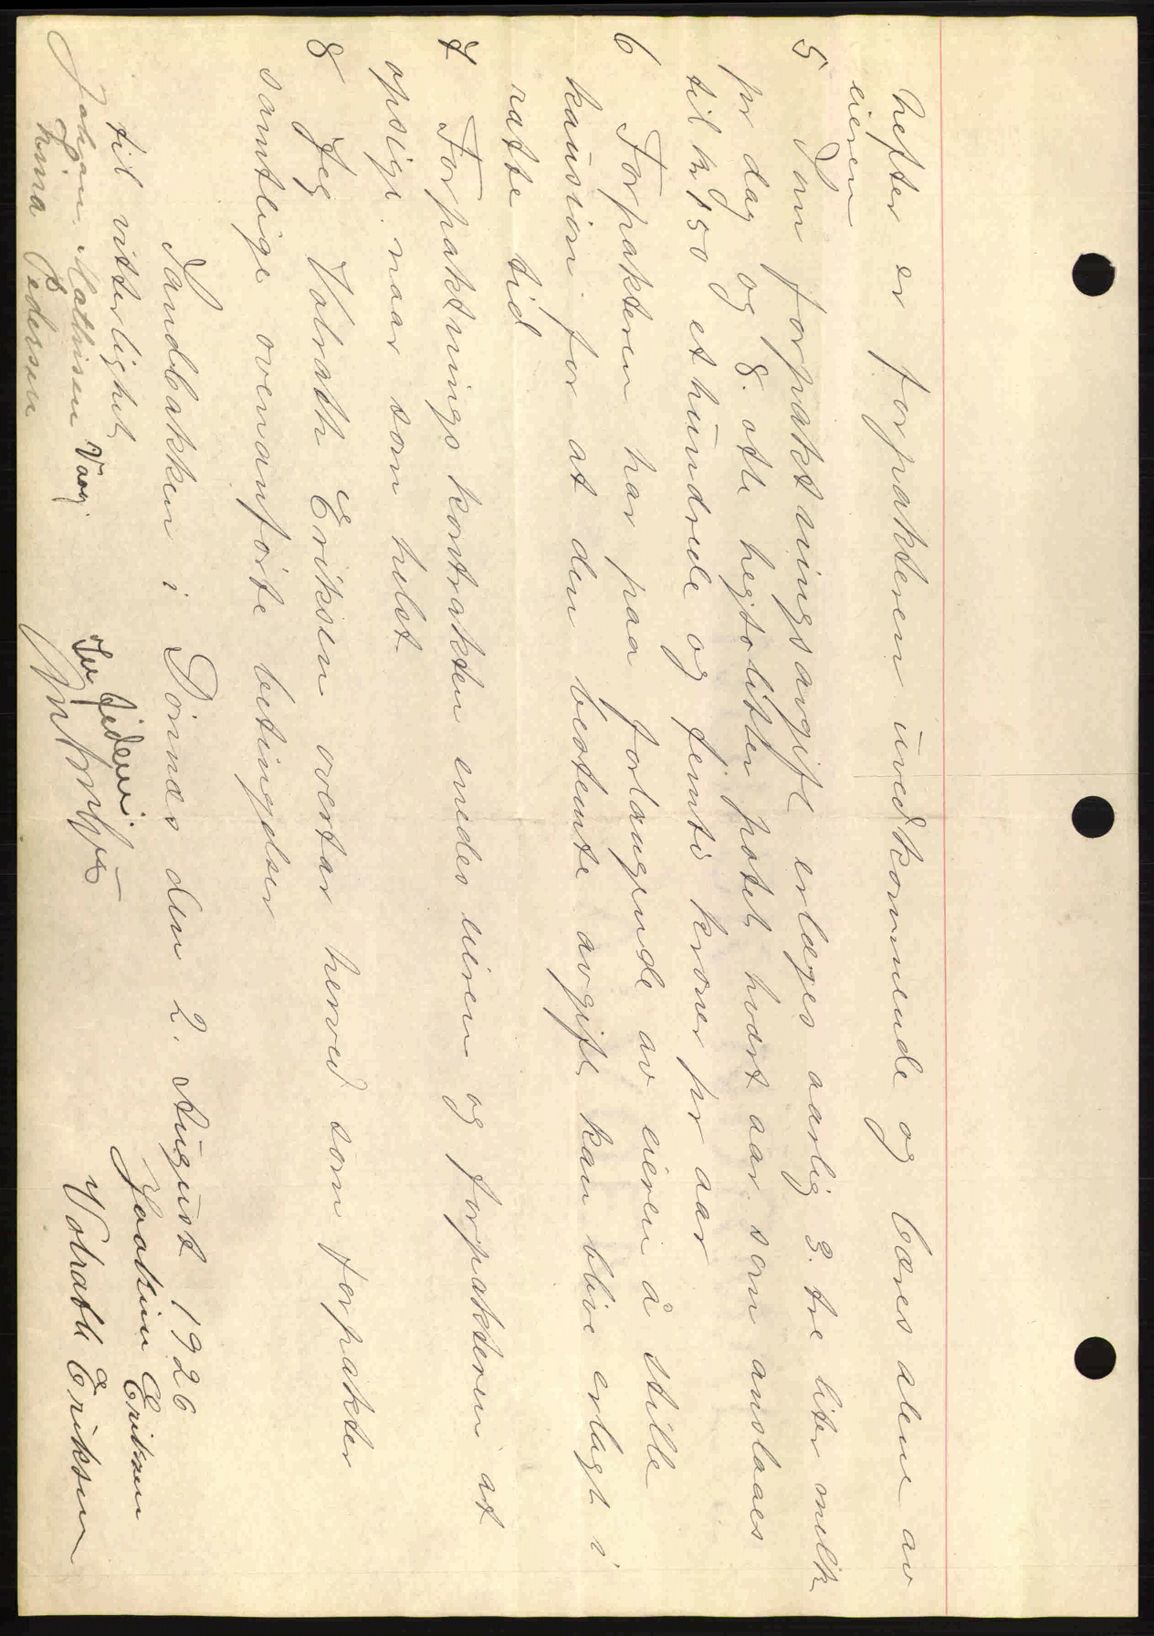 hefter er forpakteren uvedkommende og bæres alene av
eieren
5 Som forpaktningsavgift erlæges aarlig 3. tre liter melk
pr dag og 8. otte hegtolitter potet hvært aar som anslaaes
til kr 150 et hundrede og femti kroner pr aar
6 Forpakteren har paa forlangende av eieren å stille
kausion for at den bestemte avgift kan blive erlagt i
rette tid
7 Forpaktnings kontrakten endes eieren og forpakteren at
opsige naar som helst
8 Jeg Volrath Eriksen overtar herved som forpakter
samtlige ovenanførte betingelser
Sandbakken i Dönnæs den 2. August 1926
til vitterlighet
Joakim Eriksen
Johan Mathisen Vaag
Volrath Eriksen
Nina Pedersen